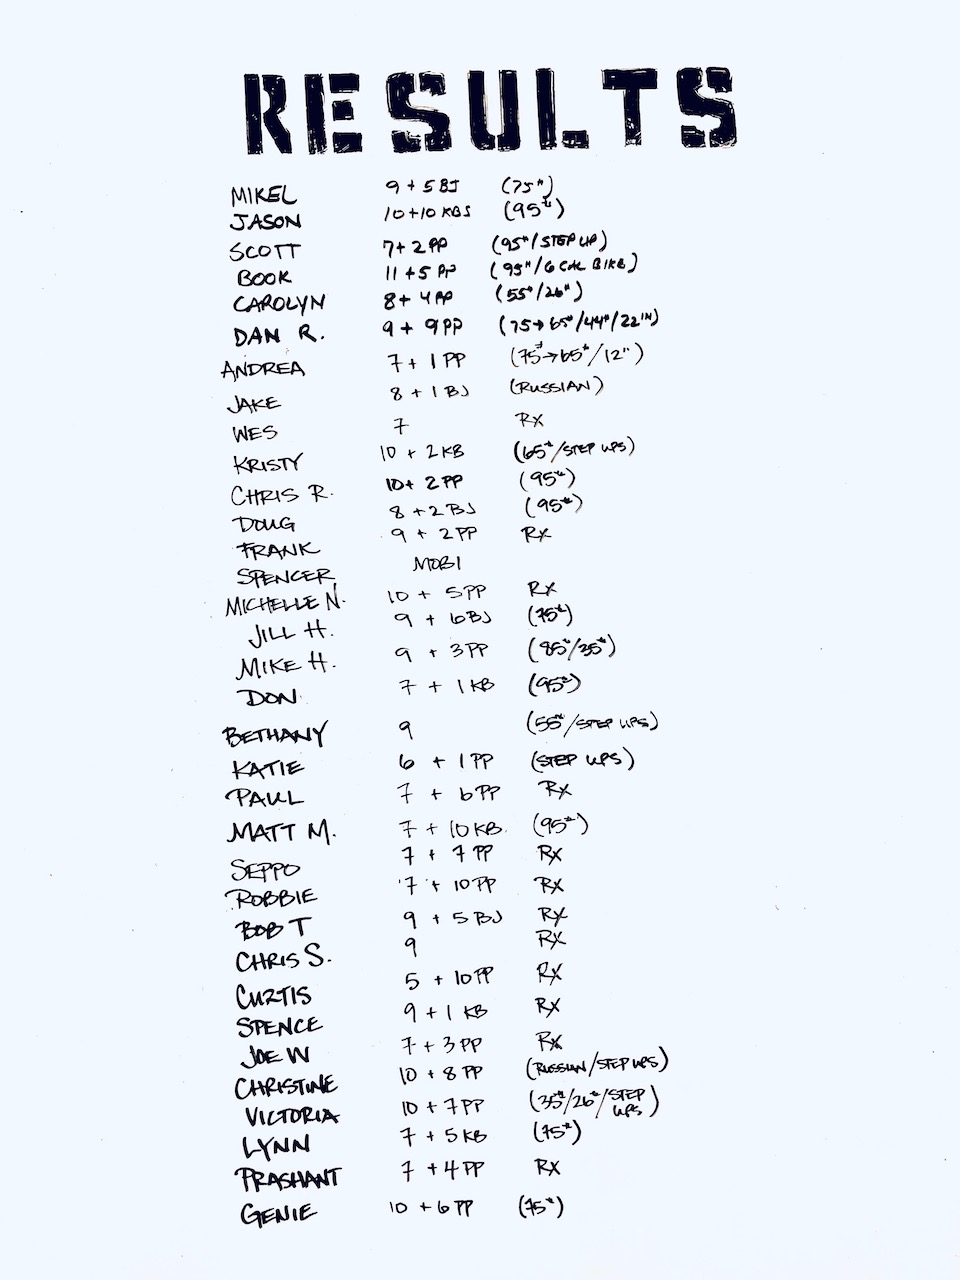 RESULTS
MIKEL 9 + 5 BJ (75#)
JASON 10+10 KBS (95#)
SCOTT 7+ 2 PP (95#/STEP UP)
BOOK 11 +5 PP (95#/6 CAL BIKE)
CAROLYN 8+ 4 PP (55#/26#)
DAN R. 9 + 9PP (75→65#/44#/22IN)
ANDREA 7 + 1 PP (75#→65#/12")
JAKE 8 + 1 BJ (RUSSIAN)
WES 7 Rx
KRISTY 10 + 2 KB (65#/STEP UPS)
CHRIS R. 10+ 2PP (95#)
DOUG 8 +2 BJ (95#)
FRANK 9 + 2PP Rx
SPENCER MOBI
MICHELLE N. 10 + 5PP Rx
JILL H. 9 + 6BJ (75#)
MIKE H. 9 + 3PP (85#/35#)
DON 7 + 1 KB (95#)
BETHANY 9 (55#/STEP UPS)
KATIE 6 + 1 PP (STEP UPS)
PAUL 7 + 6PP Rx
MATT M. 7 + 10KB (95#)
SEPPO 7 + 7 PP Rx
ROBBIE 7 + 10PP Rx
BOB T 9 + 5 BJ Rx
CHRIS S. 9 Rx
CURTIS 5 + 10PP Rx
SPENCE 9 + 1 KB Rx
JOE W 7 + 3 PP Rx
CHRISTINE 10 + 8 PP (RUSSIAN/STEP UPS)
VICTORIA 10 + 7PP (35#/26#/STEP UPS)
LYNN 7 + 5 KB (75#)
PRASHANT 7 + 4 PP Rx
GENIE 10 + 6 PP (75#)